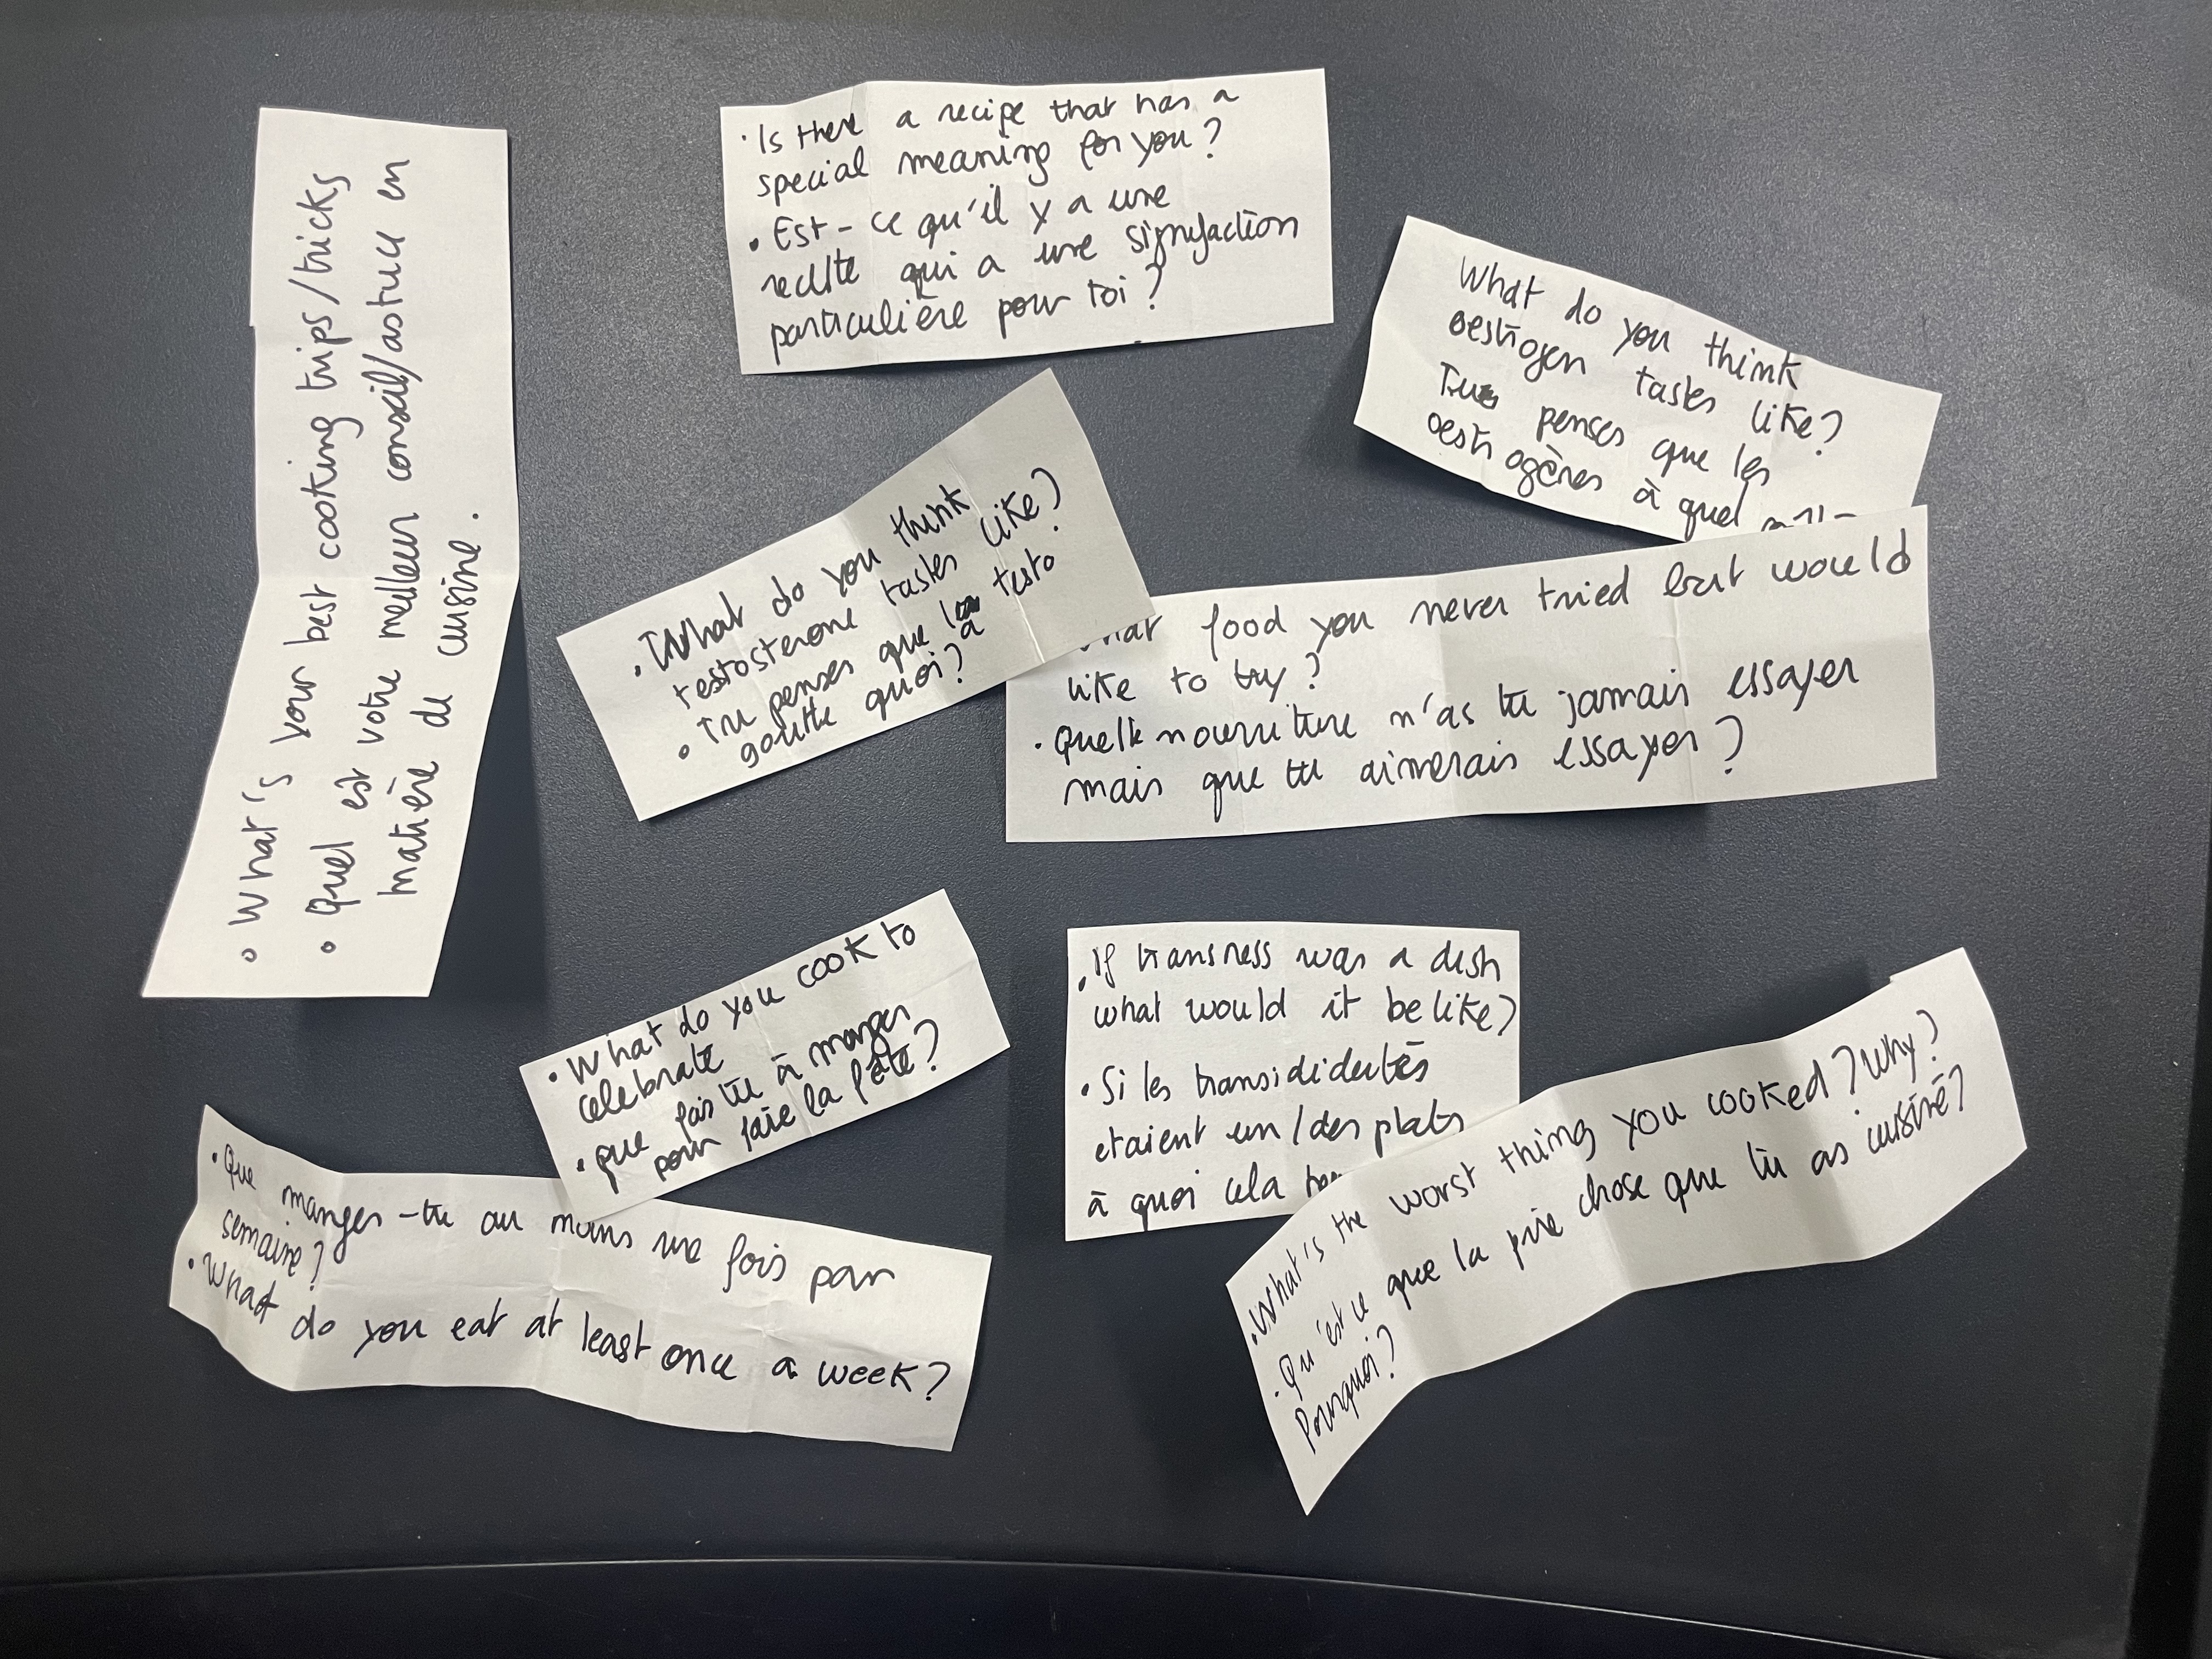 • What's your best cooking trips/tricks
• Quel est votre meilleur conseil/astuce en
matière de cuisine.
• Is there a recipe that has a
special meaning for you?
• Est-ce qu'il y a une
recette qui a une signifaction
particulière pour toi?
What do you think
oestrogen tastes like?
Tu penses que les
oestrogènes à quel
• What do you think
testosterone tastes like?
• Tu penses que la testo
goutte à quoi?
food you never tried but would
like to try?
• Quelle nourriture n'as tu jamais essayer
mais que tu aimerais essayer?
• What do you cook to
celebrate
• que fais tu à manger
pour faire la fête?
• If transness was a dish
what would it be like?
• Si les transididentés
etaient un/des plats
à quoi cela
• What's the worst thing you cooked? Why?
• Qu'est ce que la pire chose que tu as cuisiné?
Pourquoi?
• Que manges-tu au moins une fois par
semaine?
• What do you eat at least once a week?